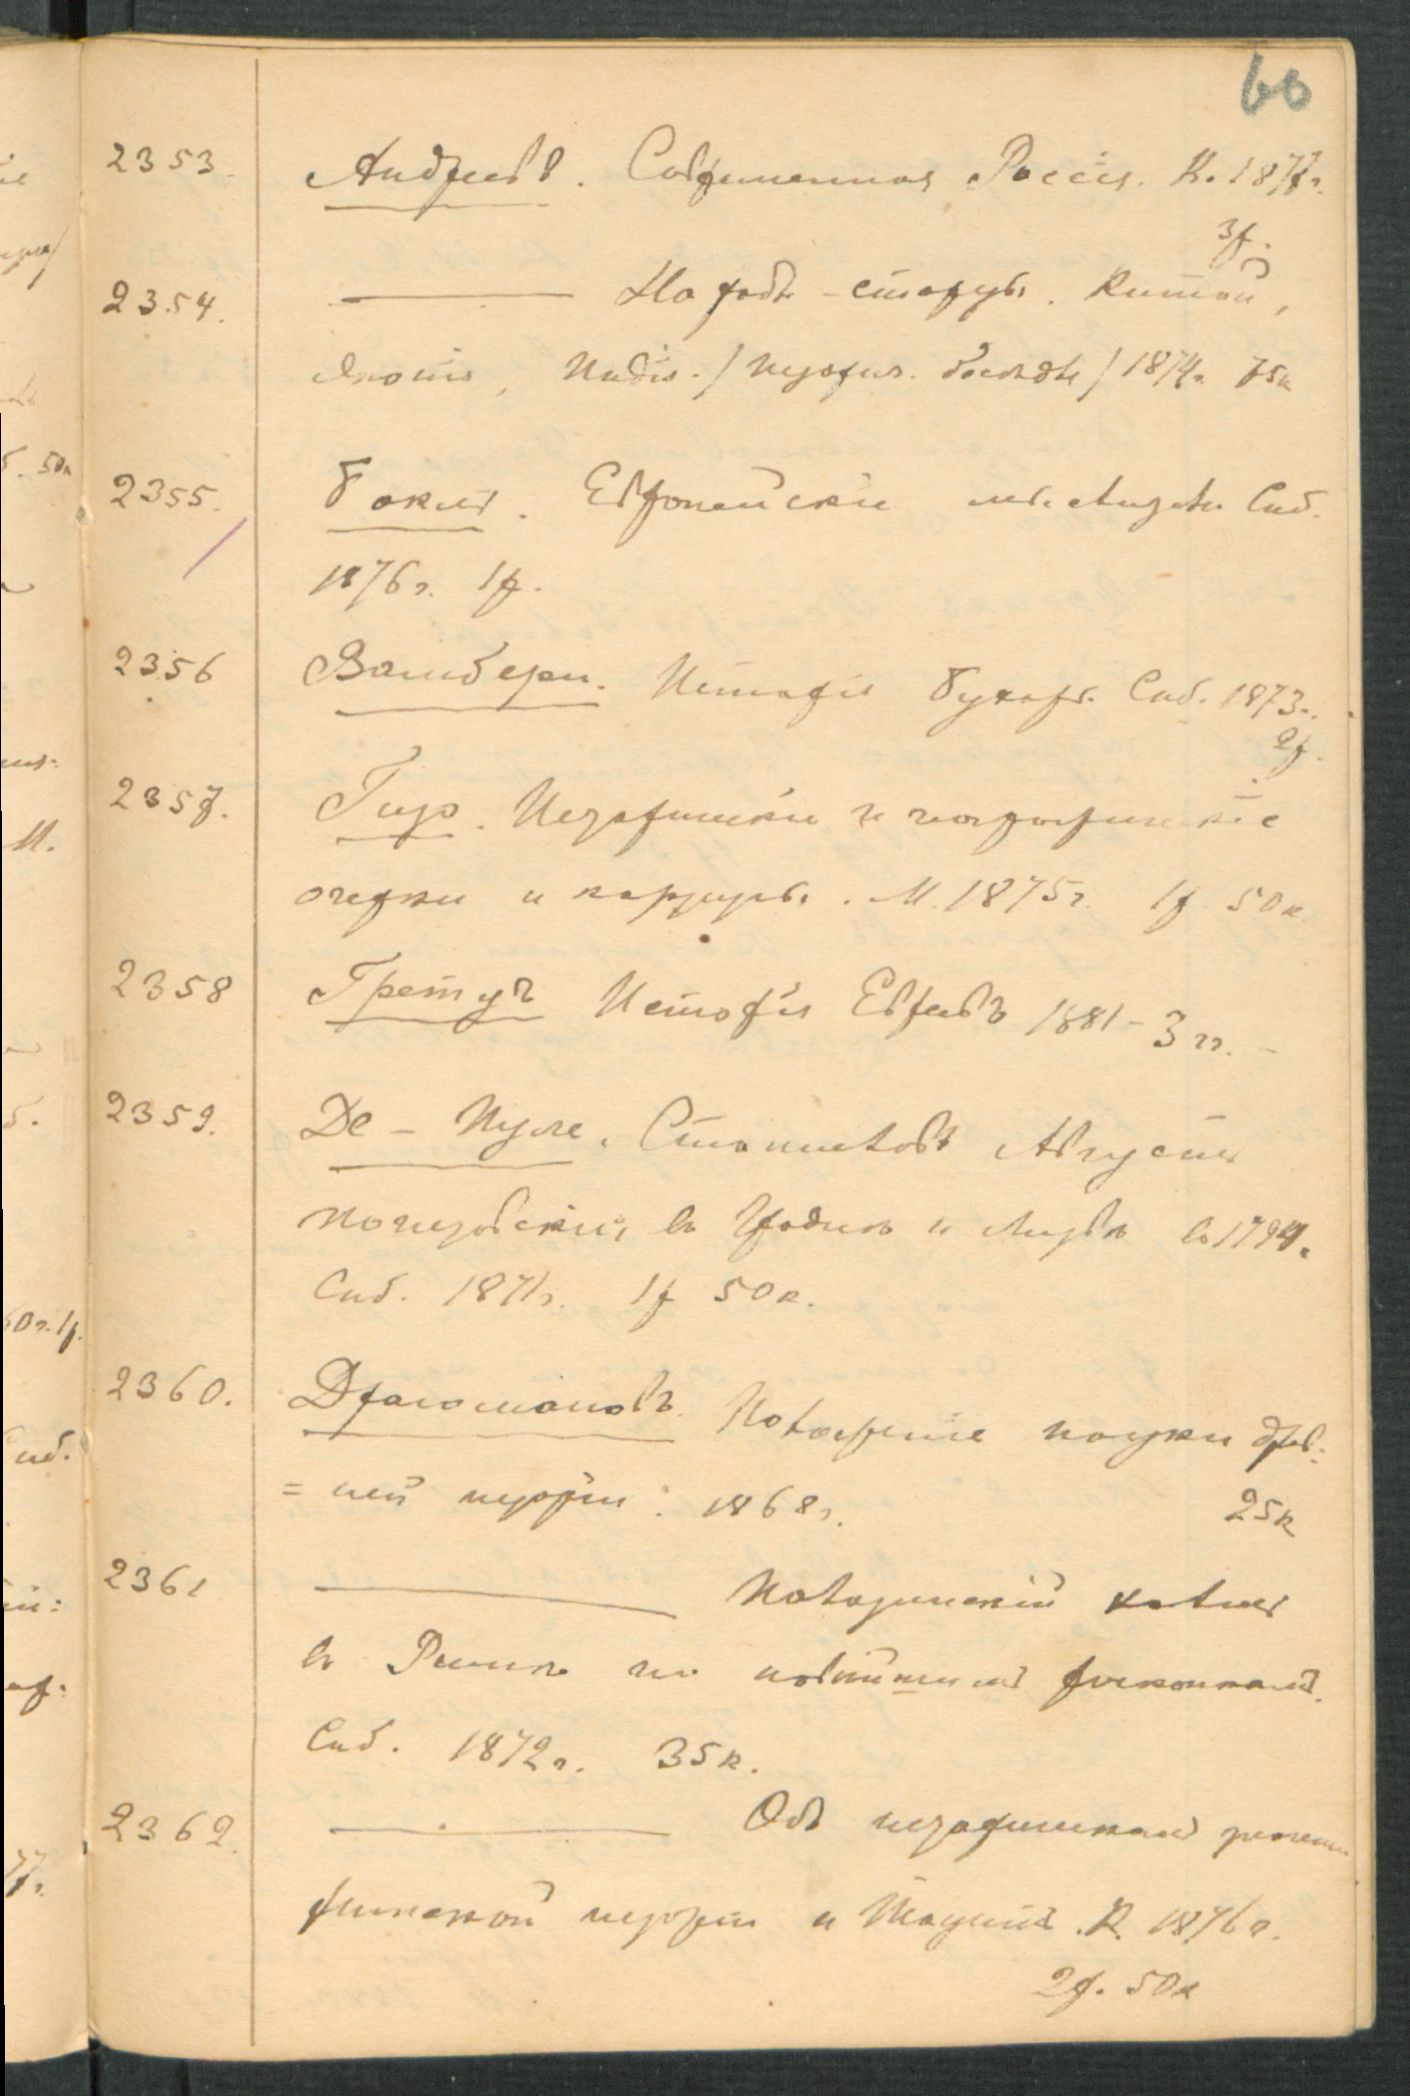 60
2353. Андреевъ. Современная Россія. К. 1877г.
3р.
2354. Народы-старцы. Китай,
Японія, Индія. / истор. бесѣды / 1874г. 75к
2355. Бокль. Европейскіе Спб.
1876г. 1р.
2356 Вамбери. Исторія Бухары. Спб. 1873г.
2р.
2357. Гиро. Историческіе и географическіе
очерки и картины. М. 1875г. 1р 50к
2358 Гретцъ Исторія Евреевъ 1881-3 гг.
2359. Де-Пуле. Станиславъ Августъ
Понятовскій въ Гродно и Литвѣ въ 1794.
Спб. 1871г. 1р 50к.
2360. Драгомановъ. Положеніе науки древ=
=ней исторіи. 1868г. 25к
2361 Поземельный
въ Римѣ по новѣйшимъ
Спб. 1872г. 35к.
2362. Объ историческомъ значеніи
римской исторіи и Тацитъ. К. 1876г.
2р. 50к